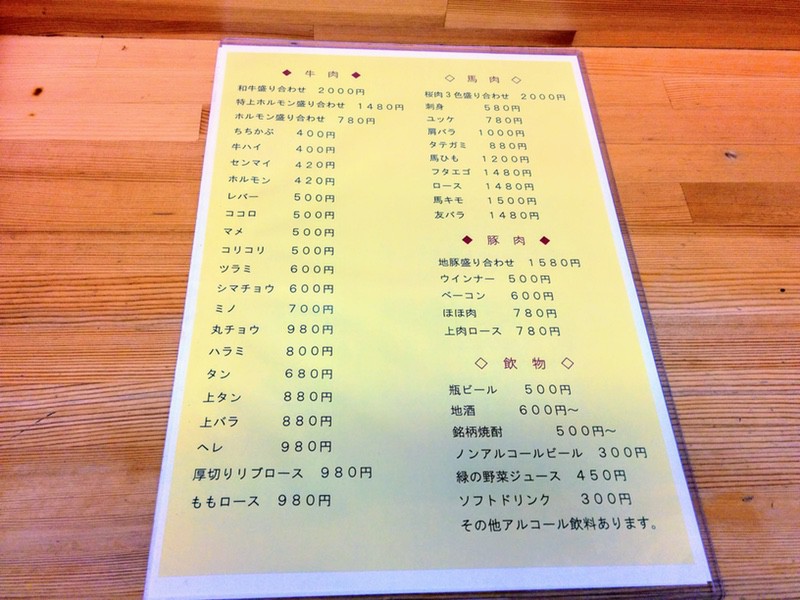 ◆ 牛 肉 ◆
和牛盛り合わせ ２０００円
特上ホルモン盛り合わせ １４８０円
ホルモン盛り合わせ ７８０円
ちちかぶ ４００円
牛ハイ ４００円
センマイ ４２０円
ホルモン ４２０円
レバー ５００円
ココロ ５００円
マメ ５００円
コリコリ ５００円
ツラミ ６００円
シマチョウ ６００円
ミノ ７００円
丸チョウ ９８０円
ハラミ ８００円
タン ６８０円
上タン ８８０円
上バラ ８８０円
ヘレ ９８０円
厚切りリブロース ９８０円
ももロース ９８０円
◇ 馬 肉 ◇
桜肉３色盛り合わせ ２０００円
刺身 ５８０円
ユッケ ７８０円
肩バラ １０００円
タテガミ ８８０円
馬ひも １２００円
フタエゴ １４８０円
ロース １４８０円
馬キモ １５００円
友バラ １４８０円
◆ 豚 肉 ◆
地豚盛り合わせ １５８０円
ウインナー ５００円
ベーコン ６００円
ほほ肉 ７８０円
上肉ロース ７８０円
◇ 飲 物 ◇
瓶ビール ５００円
地酒 ６００円～
銘柄焼酎 ５００円～
ノンアルコールビール ３００円
緑の野菜ジュース ４５０円
ソフトドリンク ３００円
その他アルコール飲料あります。